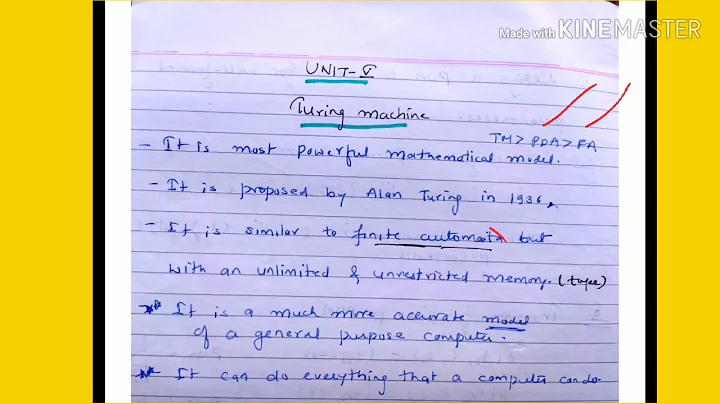 Made with KINEMASTER
UNIT-V
Turing machine
TM > PDA > FA
- It is most powerful mathematical model.
- It is proposed by Alan Turing in 1936,
- It is similar to finite automata but
with an unlimited & unrestricted memory. (tape)
** It is a much more accurate model
of a general purpose computer.
** It can do everything that a computer can do.